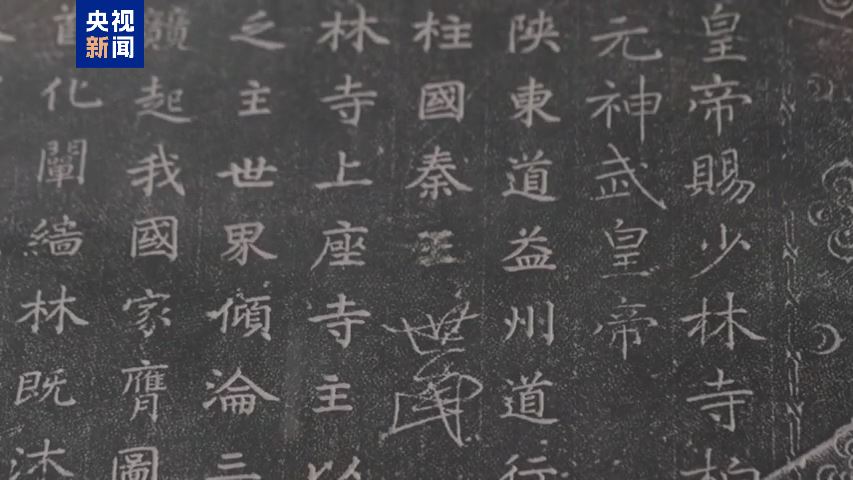 央视新闻
皇帝賜少林寺柏
元神武皇帝
陝東道益州道行
柱國秦王世民
林寺上座寺主以
之主世界傾淪三
起我國家膺圖
化闡緇林既沐